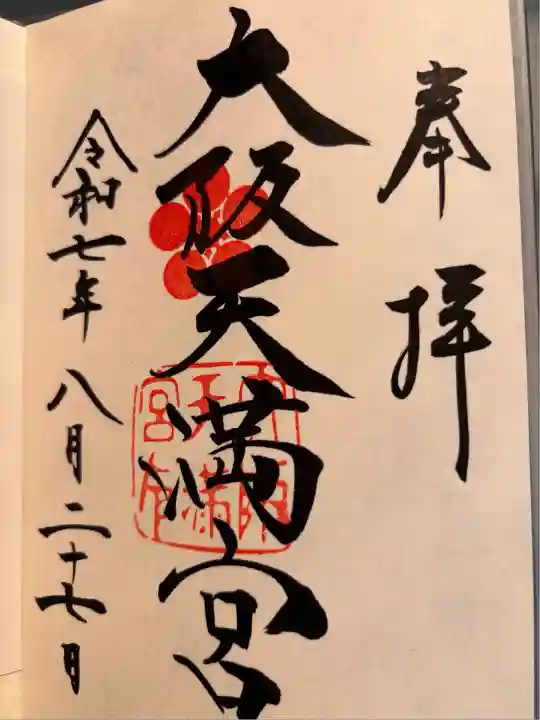 奉拝
大阪天満宮
令和七年八月二十七日